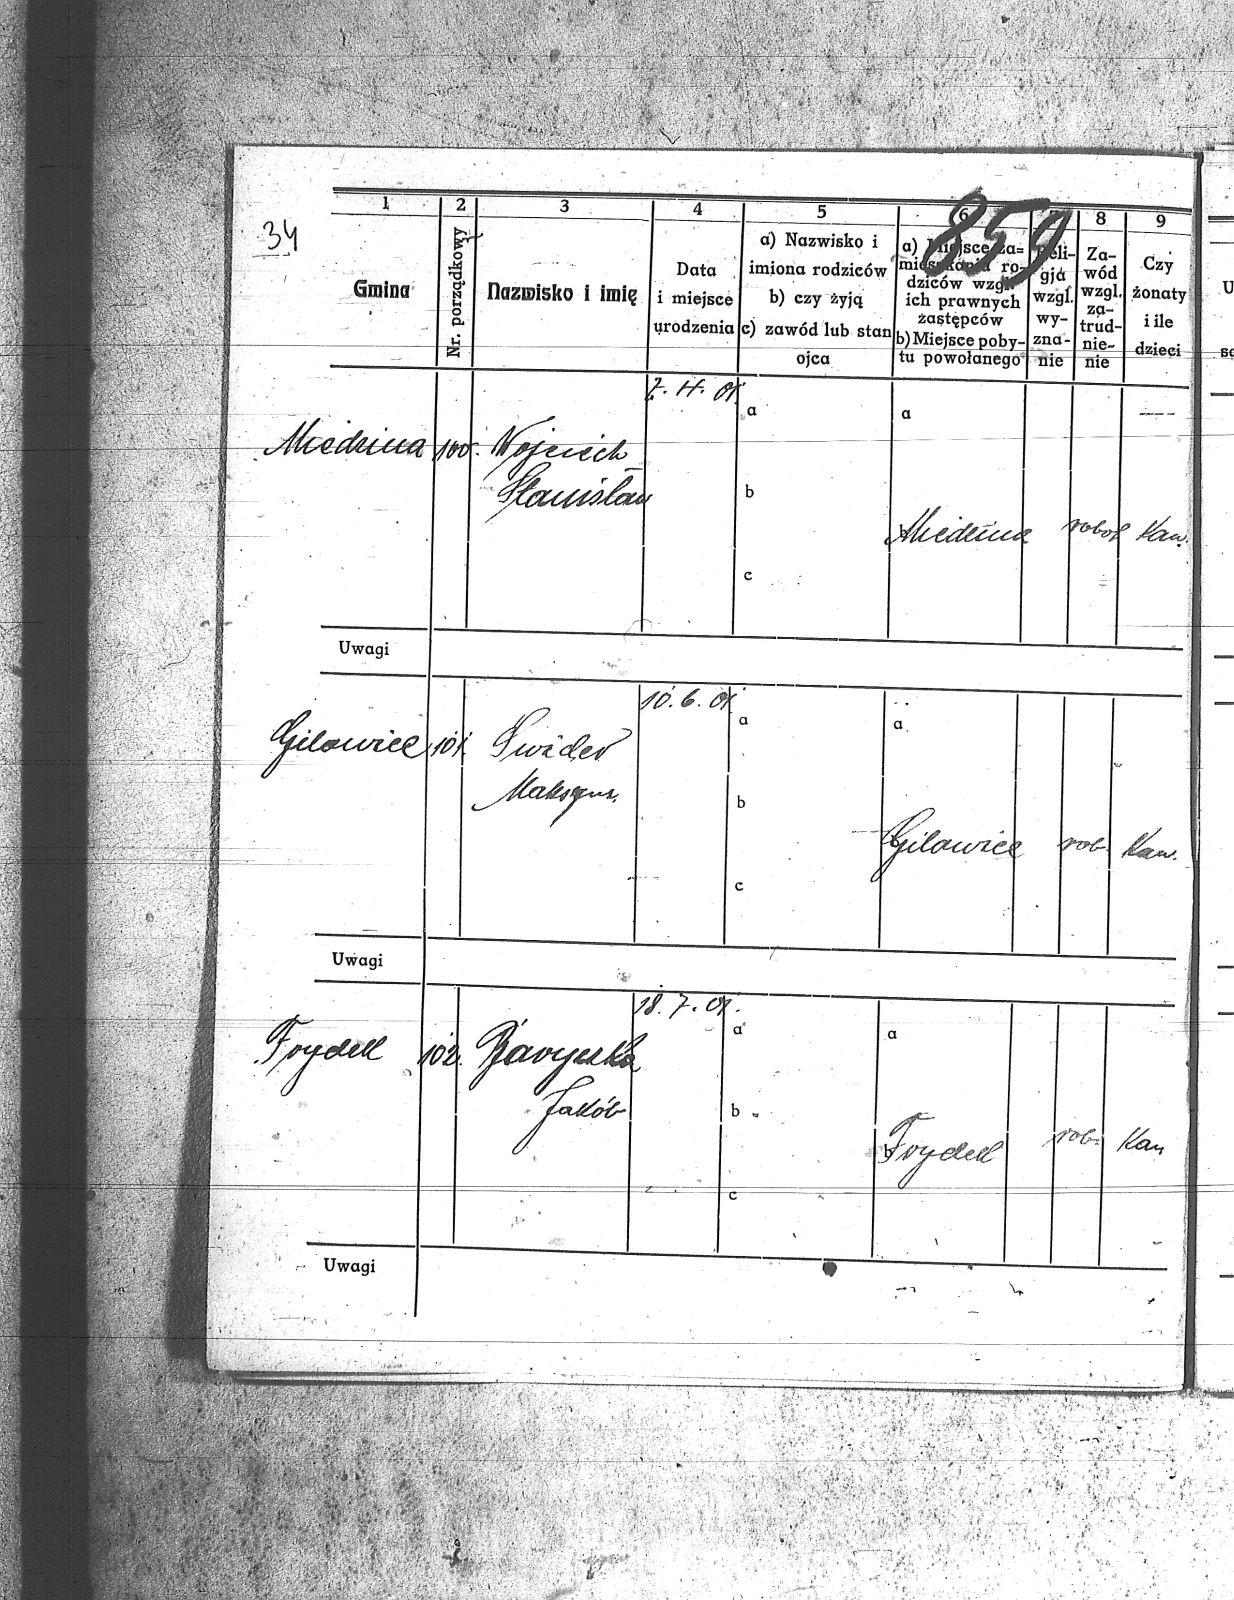 34
859
1 2 3 4 5 6 8 9
Gmina
Nr. porządkowy
Nazwisko i imię
Data
i miejsce
urodzenia
a) Nazwisko i
imiona rodziców
b) czy żyją
c) zawód lub stan
ojca
a) Miejsce za=
mieszkania ro-
dziców wzgl.
ich prawnych
zastępców
b) Miejsce poby-
tu powołanego
Reli-
gja
wzgl.
wy-
zna-
nie
Za-
wód
wzgl.
za-
trud-
nie-
nie
Czy
żonaty
i ile
dzieci
Miedzina 100. Wojciech
Stanisław
7. 4. 01.
a
b
c
a
Miedzina robot Kaw.
Uwagi
Gilowice 101. Swider
Maksym.
10. 6. 01.
a
b
c
a
Gilowice rob. Kaw.
Uwagi
Frydek 102.
Jakób
18. 7. 01.
a
b
c
a
b Frydek rob. Kaw
Uwagi